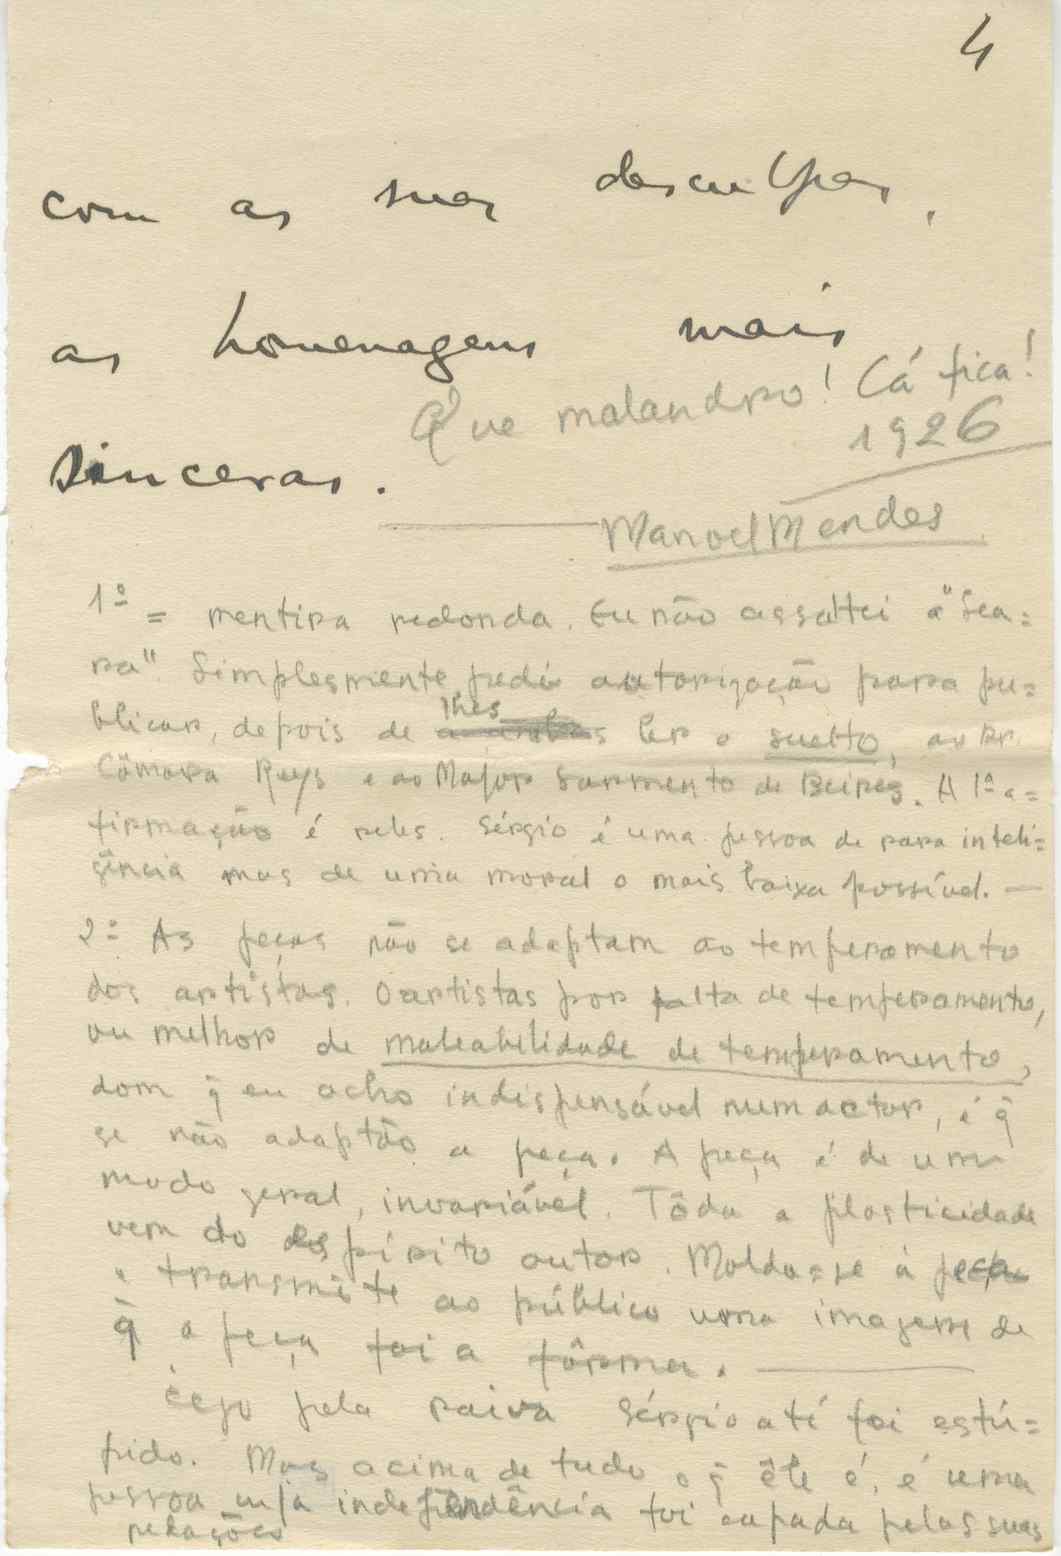 4
com as suas desculpas,
as homenagens mais
sinceras.
Que malandro! Cá fica!
1926
Manoel Mendes
1º = mentira redonda. Eu não assaltei a "Sea=
ra". Simplesmente pedi autorização para pu=
blicar, depois de lhes ler o suelto, ao Dr.
Câmara Reys e ao Major Sarmento de Beires. A 1ª a=
firmação é reles. Sérgio é uma pessoa de rara inteli=
gência mas de uma moral o mais baixa possível. —
2º As peças não se adaptam ao temperamento
dos artistas. O artistas por falta de temperamento,
ou melhor de maleabilidade de temperamento,
dom q̃ eu acho indispensável num actor, é q̃
se não adaptão a peça. A peça é de um
modo geral, invariável. Tôda a plasticidade
vem do espírito autor. Molda-se à peça
e transmite ao público uma imagem de
q̃ a peça foi a fôrma. —
Cego pela raiva Sérgio até foi estú=
pido. Mas acima de tudo o q̃ êle é, é uma
pessoa cuja independência foi capada pelas suas
relações